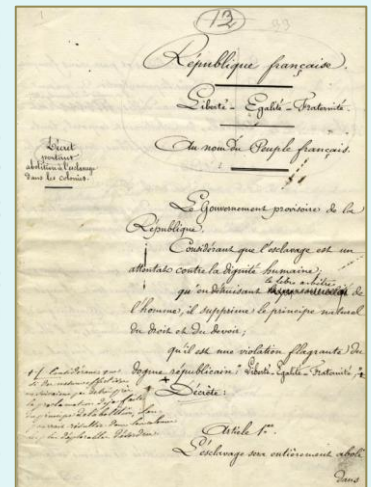 13
République française.
Liberté - Egalité - Fraternité.
Au nom du Peuple français.
Décret
portant
abolition de l'esclavage
dans les colonies.
Le Gouvernement provisoire de la
République,
Considérant que l'esclavage est un
attentat contre la dignité humaine;
qu'en détruisant le libre arbitre de
l'homme, il supprime le principe naturel
du droit et du devoir;
qu'il est une violation flagrante du
dogme républicain: Liberté-Egalité-Fraternité;
+ Considérant que
si des mesures effectives
la proclamation déjà faite
du principe de l'abolition,
Décrète:
Article 1er
L'esclavage sera entièrement aboli
dans